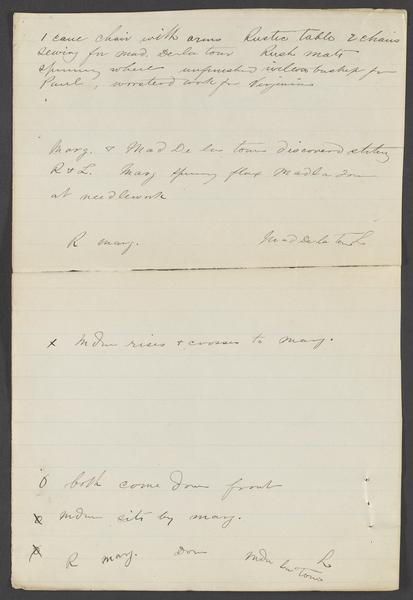 1 cane chair with arms Rustic table 2 chairs
Sewing for Mad. De la tour Rush mats
spinning wheel unfinished willow basket for
Paul, worsted work for Virginia
Marg. & Mad De la tour discovered sitting
R & L. Marg spinning flax Mad la Tour
at needlework
R Marg. Mad De la Tour L
x Mdm rises & crosses to Marg.
O both come down front
x Mdm sits by Marg.
x R Marg. Dom Mdm L
la tour